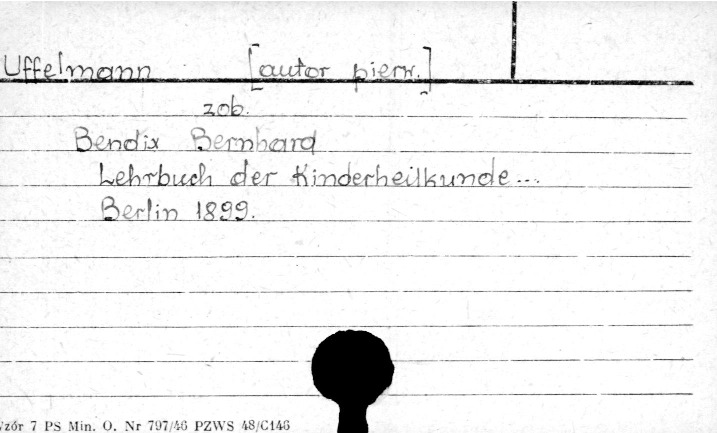 Uffelmann [autor pierw.]
zob.
Bendix Bernhard
Lehrbuch der Kinderheilkunde...
Berlin 1899.
Wzór 7 PS Min. O. Nr 797/46 PZWS 48/C146